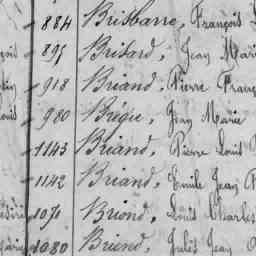 884 Brisbarre, François
895 Brisard, Jean Mari
918 Briand, Pierre Franç
980 Brégie, Jean Marie
1143 Briand, Pierre Louis
1142 Briand, Emile Jean
1071 Briond, Louis Charles
1080 Briend, Jules Jean